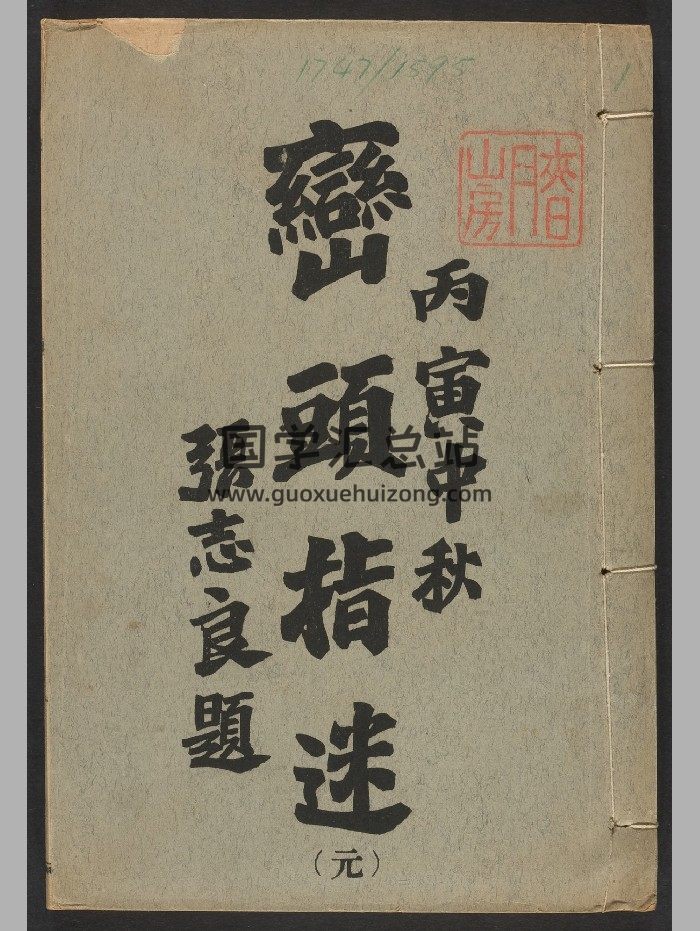 1747/1595
1
春日
月
山房
丙寅中秋
巒頭指迷
(元)
張志良題
国学汇总站
www.guoxuehuizong.com